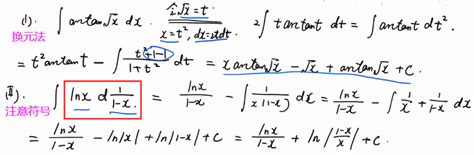 (I). ∫ arctan√x dx 令√x=t. x=t², dx=2tdt 2∫ t arctant dt = ∫ arctant dt².
换元法
= t²arctant - ∫ (t²+1-1)/(1+t²) dt = x arctan√x - √x + arctan√x + C.
(II). ∫ lnx d 1/(1-x) = lnx/(1-x) - ∫ 1/(x(1-x)) dx = lnx/(1-x) - ∫ 1/x + 1/(1-x) dx
注意符号
= lnx/(1-x) - ln|x| + ln|1-x| + C = lnx/(1-x) + ln|(1-x)/x| + C.